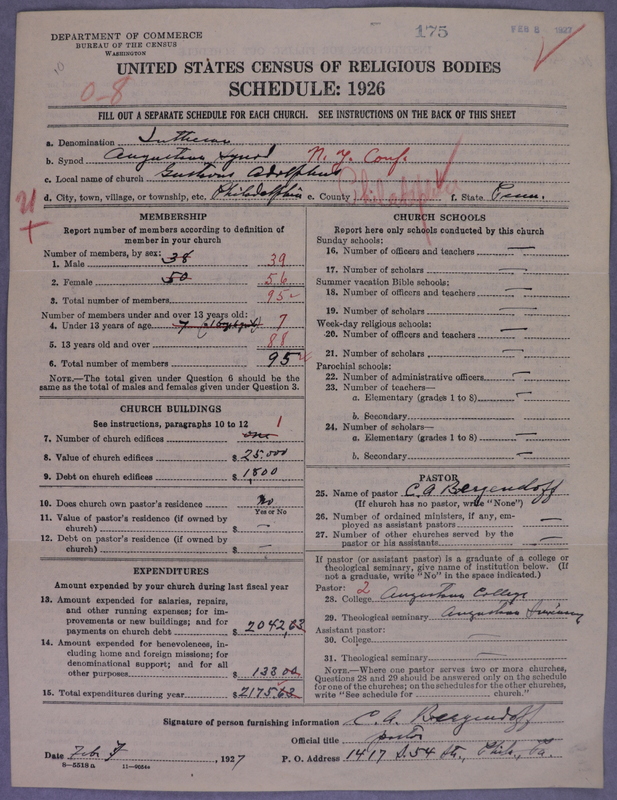 DEPARTMENT OF COMMERCE
BUREAU OF THE CENSUS
WASHINGTON
175
FEB 8 1927
10
0-8
UNITED STATES CENSUS OF RELIGIOUS BODIES
SCHEDULE: 1926
FILL OUT A SEPARATE SCHEDULE FOR EACH CHURCH. SEE INSTRUCTIONS ON THE BACK OF THIS SHEET
a. Denomination Lutheran
b. Synod Augustana Synod N. Y. Conf.
c. Local name of church Gustavus Adolphus
d. City, town, village, or township, etc. Philadelphia e. County Philadelphia f. State Penn.
MEMBERSHIP
Report number of members according to definition of
member in your church
Number of members, by sex:
1. Male 38 39
2. Female 50 56
3. Total number of members 95
Number of members under and over 13 years old:
4. Under 13 years of age 7 7
5. 13 years old and over 88
6. Total number of members 95
NOTE.—The total given under Question 6 should be the
same as the total of males and females given under Question 3.
CHURCH BUILDINGS
See instructions, paragraphs 10 to 12 1
7. Number of church edifices one
8. Value of church edifices $ 25.000
9. Debt on church edifices $ 1,800
10. Does church own pastor's residence No
Yes or No
11. Value of pastor's residence (if owned by
church) $ —
12. Debt on pastor's residence (if owned by
church) $ —
EXPENDITURES
Amount expended by your church during last fiscal year
13. Amount expended for salaries, repairs,
and other running expenses; for im-
provements or new buildings; and for
payments on church debt $ 2042,63
14. Amount expended for benevolences, in-
cluding home and foreign missions; for
denominational support; and for all
other purposes $ 133 00
15. Total expenditures during year $ 2175 63
CHURCH SCHOOLS
Report here only schools conducted by this church
Sunday schools:
16. Number of officers and teachers —
17. Number of scholars —
Summer vacation Bible schools:
18. Number of officers and teachers —
19. Number of scholars —
Week-day religious schools:
20. Number of officers and teachers —
21. Number of scholars —
Parochial schools:
22. Number of administrative officers —
23. Number of teachers—
a. Elementary (grades 1 to 8) —
b. Secondary —
24. Number of scholars—
a. Elementary (grades 1 to 8) —
b. Secondary —
PASTOR
25. Name of pastor C. A. Bergendoff
(If church has no pastor, write "None")
26. Number of ordained ministers, if any, em-
ployed as assistant pastors —
27. Number of other churches served by the
pastor or his assistants —
If pastor (or assistant pastor) is a graduate of a college or
theological seminary, give name of institution below. (If
not a graduate, write "No" in the space indicated.)
Pastor: 2
28. College Augustana College
29. Theological seminary Augustana Seminary
Assistant pastor:
30. College —
31. Theological seminary —
NOTE.—Where one pastor serves two or more churches,
Questions 28 and 29 should be answered only on the schedule
for one of the churches; on the schedules for the other churches,
write "See schedule for church."
Signature of person furnishing information C. A. Bergendoff
Official title pastor
Date Feb 7, 1927 P. O. Address 1417 S. 54 St., Phila., Pa.
8—5518a 11—9054